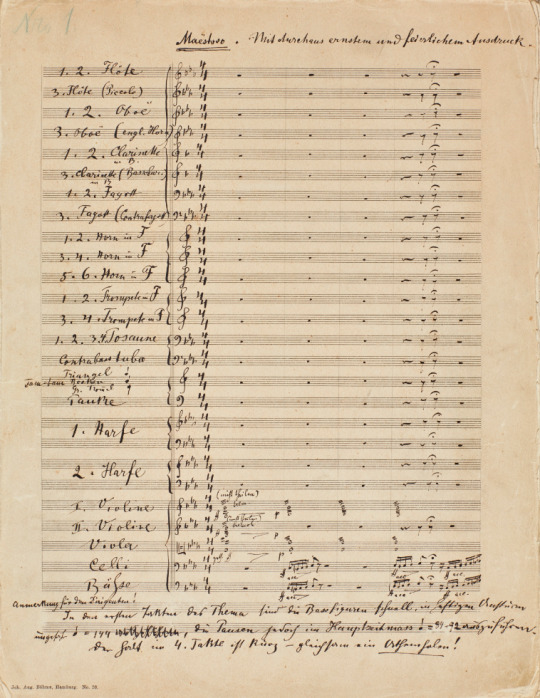 No 1.
Maëstoso. Mit durchaus ernstem und feierlichem Ausdruck.
1. 2. Flöte
3. Flöte (Piccolo)
1. 2. Oboë
3. Oboë (engl. Horn)
1. 2. Clarinette
in B.
3. Clarinette (Bassclar.)
in B
1. 2. Fagott
3. Fagott (Contrafagott)
1. 2. Horn in F
3. 4. Horn in F
5. 6. Horn in F
1. 2. Trompete in F
3. 4. Trompete in F
1. 2. 3. Posaune
Contrabasstuba
Triangel
Tam-tam Becken
Gr. Trommel
Pauke
1. Harfe
2. Harfe
I. Violine
II. Violine
Viola
Celli
Bässe
Anmerkung für den Dirigenten!
In den ersten Takten des Thema sind die Bassfiguren schnell, in heftigem Ansturm
ungefähr = 144, die Pausen jedoch im Hauptzeitmass = 84-92 auszuführen.
Der Halt im 4. Takte ist kurz – gleichsam ein Athemholen!
Joh. Aug. Böhme, Hamburg. No.